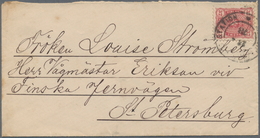 Fröken Louise Stromberg
Herr Vågmästar Erikson viv
Finska Jernvägen
St. Petersburg